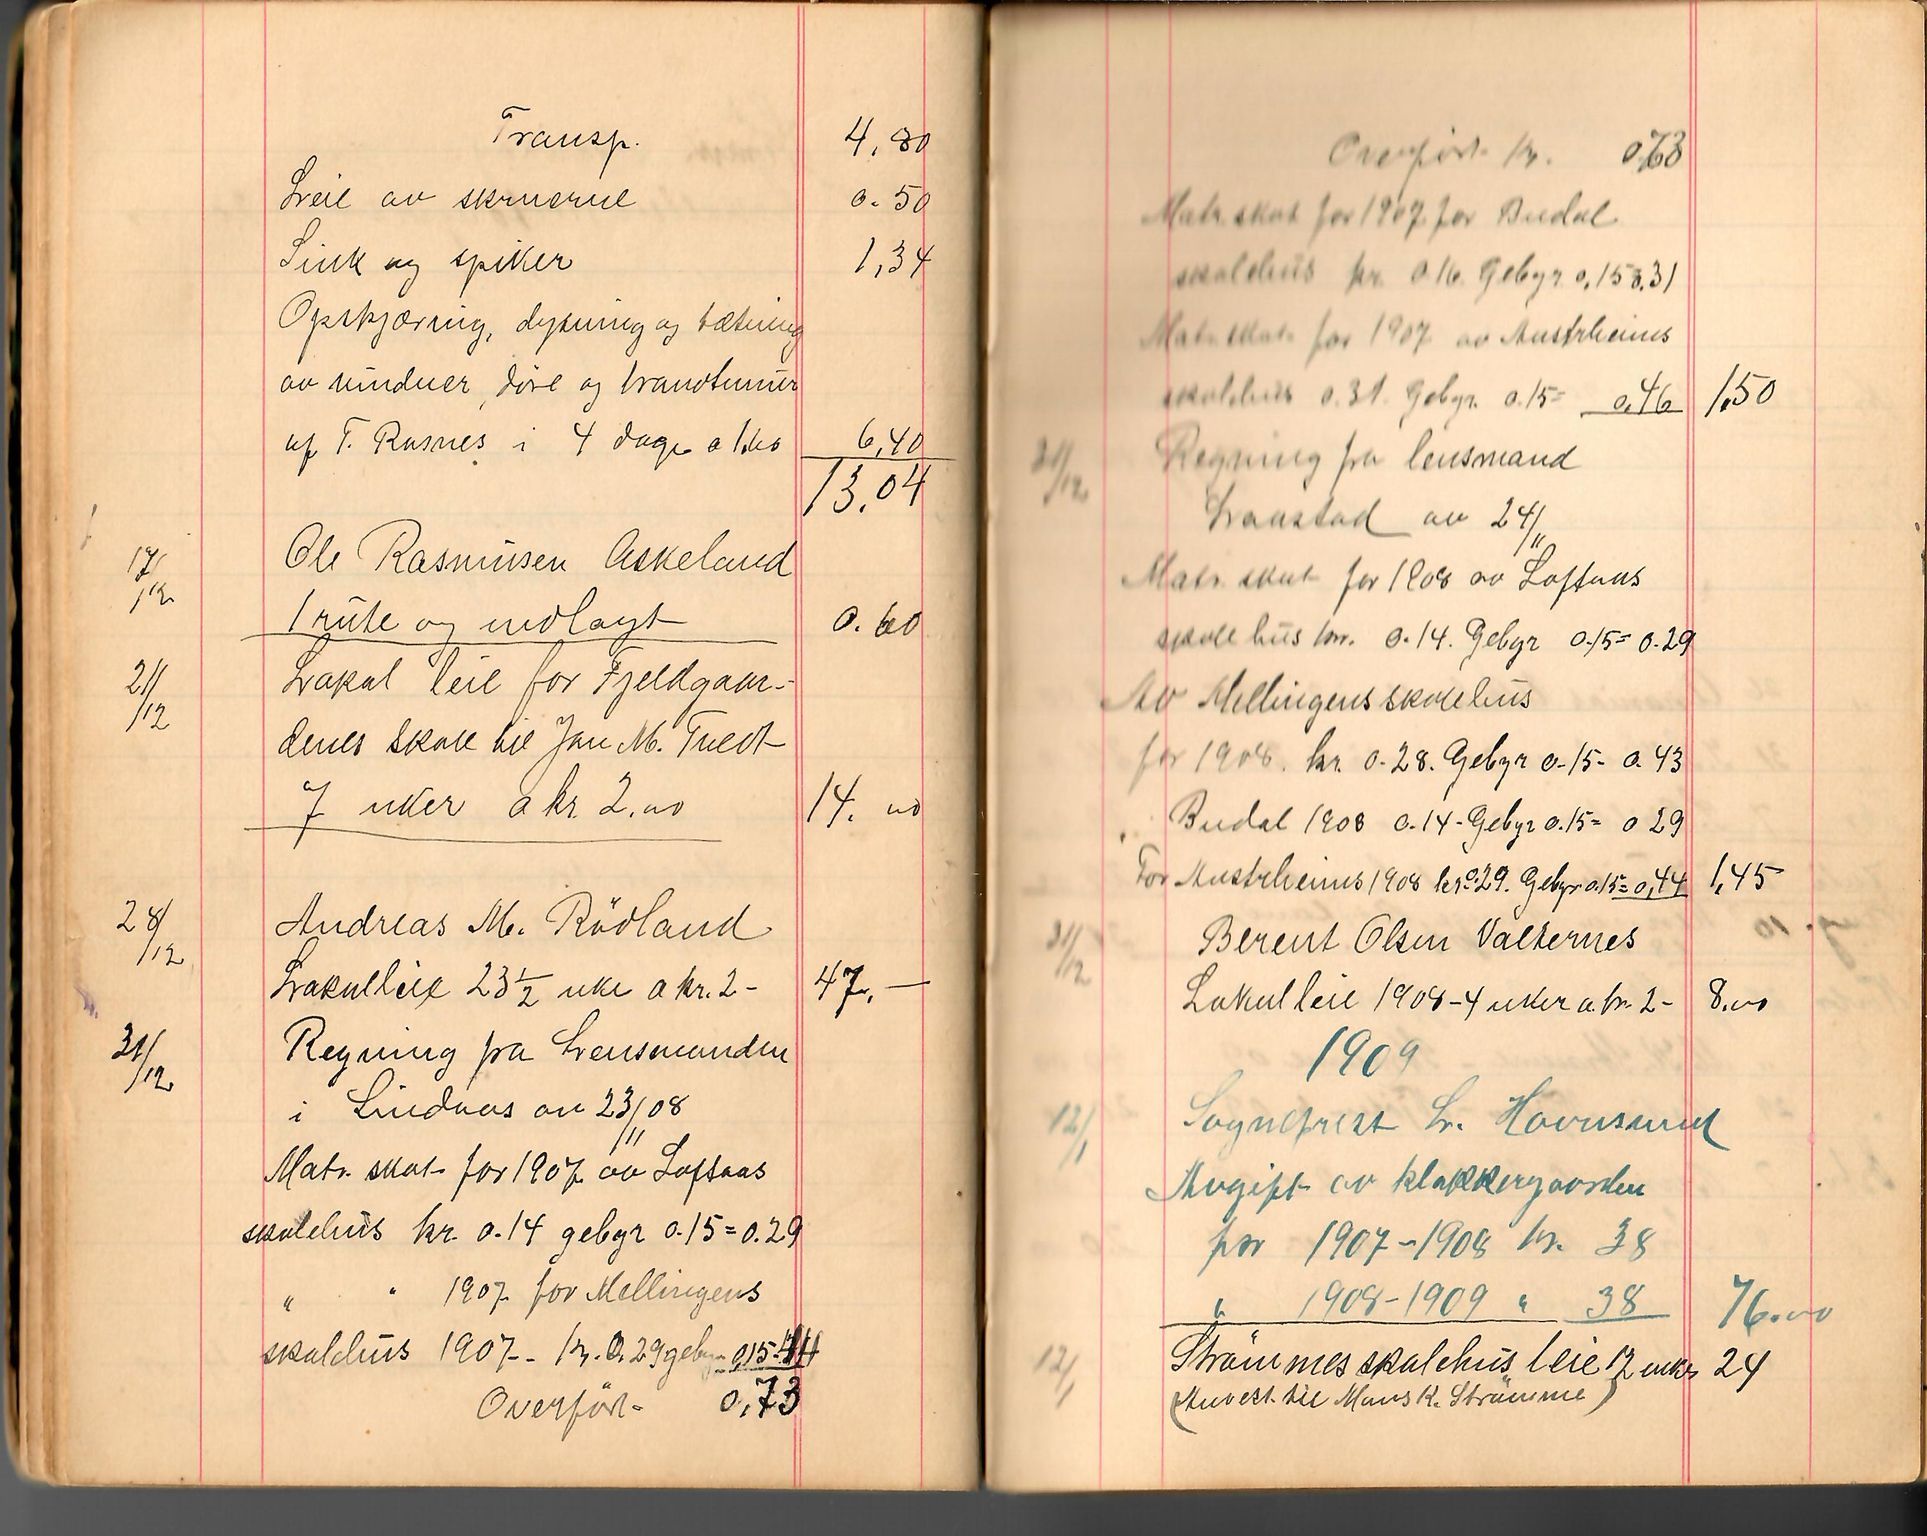 Transp. 4,80
Leie av skruerne 0.50
Sink og spiker 1,34
Opskjæring, dytning og tætning
av vinduer, döre og brandtmur
af T. Rasnes i 4 dage a 1.60 6,40
13.04
17/12 Ole Rasmusen Askeland
1 rute og indlagt 0.60
21/12 Lokal leie for Fjeldgaar-
denes skole til Jan M. Tvedt
7 uker a kr. 2.00 14.00
28/12 Andreas M. Rödland
Lokalleie 23½ uke a kr. 2- 47,—
31/12 Regning fra Lensmanden
i Lindaas av 23/11 08
Matr. skat for 1907 av Loftaas
skolehus kr. 0.14 gebyr 0.15=0.29
" " 1907 for Mellingens
skolehus 1907- kr. 0.29 gebyr 0,15 44
Overfört- 0,73
Overfört kr. 0,73
Matr. skat for 1907 for Budal
skolehus kr. 0.16. Gebyr 0,15 0.31
Matr. skat for 1907 av Austrheims
skolehus 0.31. Gebyr. 0.15= 0,46 1,50
31/12 Regning fra lensmand
av 24/11
Matr. skat for 1908 av Loftaas
skolehus kr. 0.14. Gebyr 0.15= 0.29
Av Mellingens skolehus
for 1908. kr. 0.28. Gebyr 0.15- 0.43
Budal 1908 0.14-Gebyr 0.15= 0 29
For Austrheims 1908 kr 0.29. Gebyr 0.15=0,44 1,45
31/12 Berent Olsen Valternes
Lokalleie 1908-4 uker a. kr. 2- 8.00
1909
12/1 Sogneprest L. Hovnsund
Avgift av klokkergaarden
for 1907-1908 kr. 38
" 1908-1909 " 38 76.00
12/1 Strömmes skolehus leie 12 uker 24
(Anvest. til Mons K. Strömme)